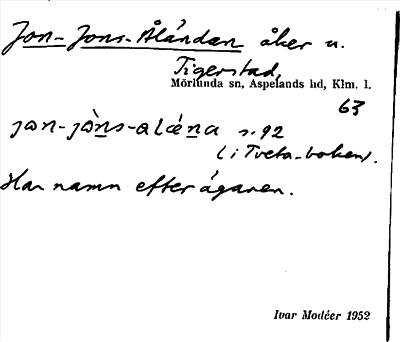 Jon-Jons-Ålándan åker u.
Tigerstad,
Mörlunda sn, Aspelands hd, Klm. l.
63
jon-jòns-alána s. 92
(i Tveta-boken).
Har namn efter ägaren.
Ivar Modéer 1952